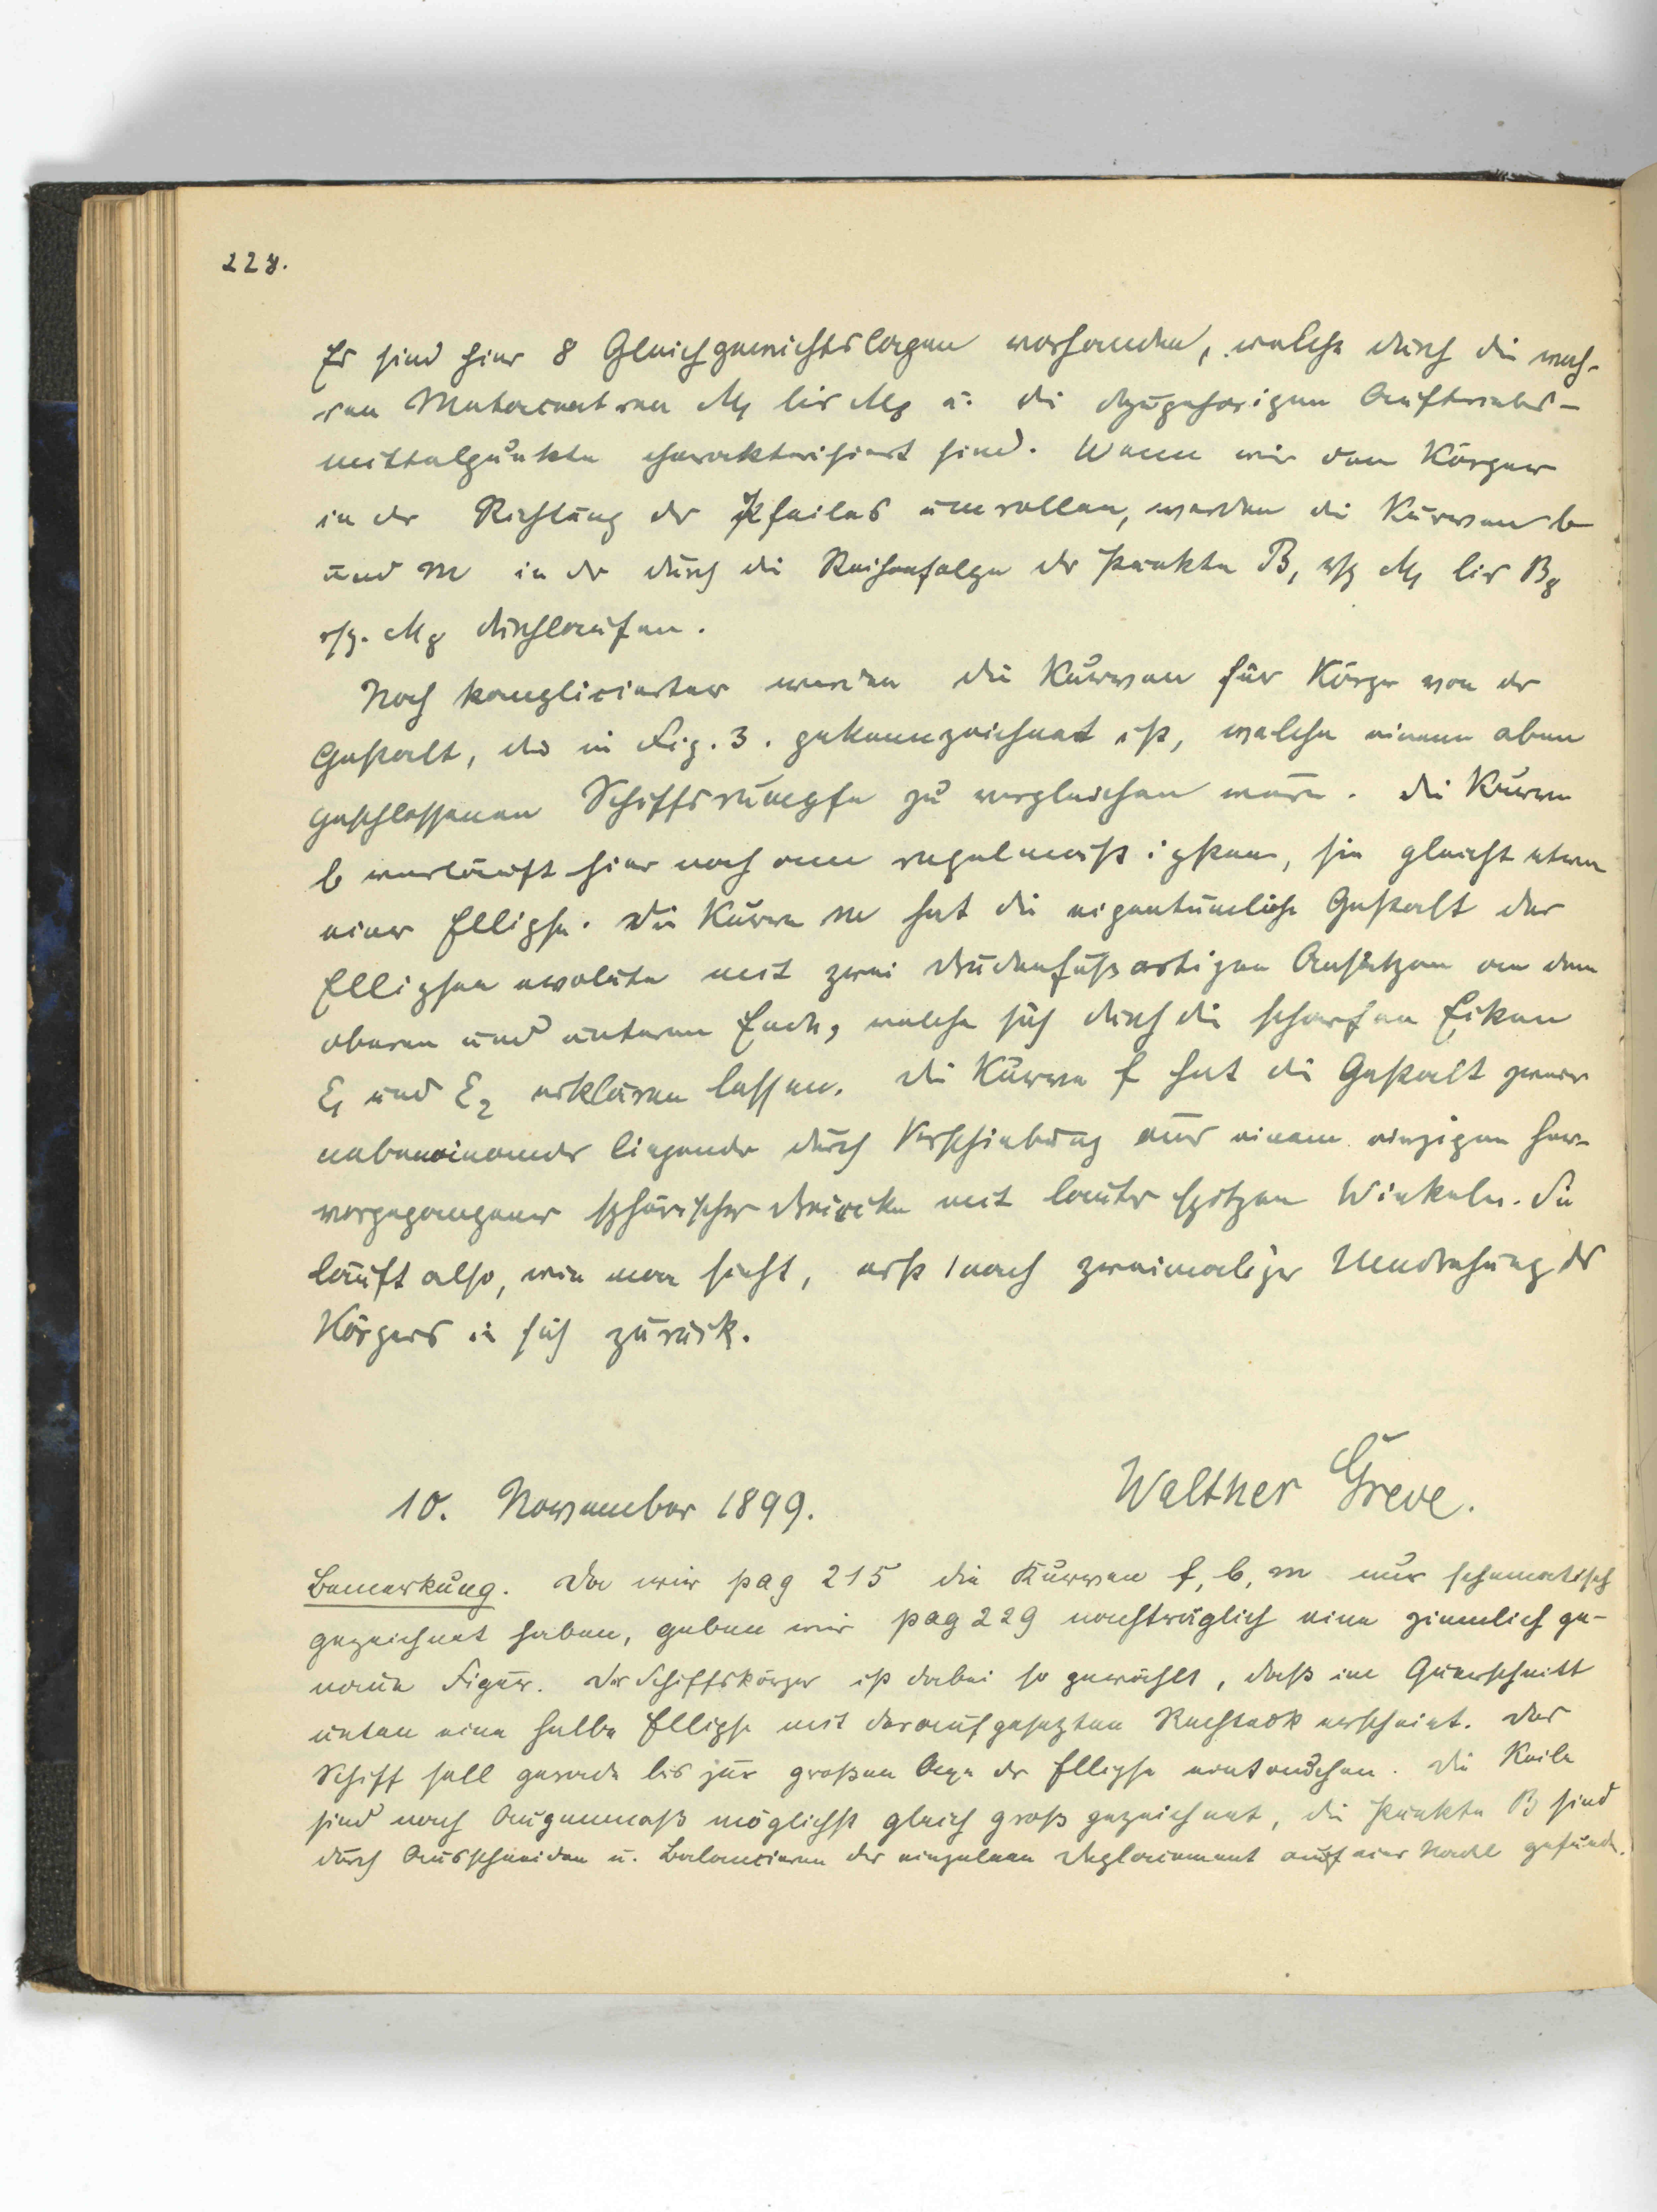 228.
Es sind hier 8 Gleichgewichtslagen vorhanden, welche durch die wah-
ren Metacentren M₁ bis M₈ u. die dazugehörigen Auftriebs-
mittelpunkte charakterisiert sind. Wenn wir den Körper
in der Richtung des Pfeiles umrollen, werden die Kurven b
und m in der durch die Reihenfolge der Punkte B₁ rsp M₁ bis B₈
rsp. M₈ durchlaufen.
Noch komplicierter werden die Kurven für Körper von der
Gestalt, die in Fig. 3. gekennzeichnet ist, welche einem oben
geschlossenen Schiffsrumpfe zu vergleichen wäre. Die Kurve
b verläuft hier noch am regelmässigsten, sie gleicht etwa
einer Ellipse. Die Kurve m hat die eigentümliche Gestalt der
Ellipsenevolute mit zwei drudenfussartigen Ansätzen an dem
oberen und unteren Ende, welche sich durch die scharfen Ecken
E₁ und E₂ erklären lassen. Die Kurve f hat die Gestalt zweier
nebeneinander liegender durch Verschiebung aus einem einzigen her-
vorgegangener sphärischer Dreiecke mit lauter spitzen Winkeln. Sie
läuft also, wie man sieht, erst nach zweimaliger Umdrehung des
Körpers in sich zurück.
10. November 1899.
Walther Greve.
Bemerkung. Da wir pag 215 die Kurven f, b, m nur schematisch
gezeichnet haben, geben wir pag 229 nachträglich eine ziemlich ge-
naue Figur. Der Schiffskörper ist dabei so gewählt, daß im Querschnitt
unten eine halbe Ellipse mit daraufgesetztem Rechteck erscheint. Das
Schiff soll gerade bis zur großen Axe der Ellipse eintauchen. Die Keile
sind nach Augenmaß möglichst gleich groß gezeichnet, die Punkte B sind
durch Ausschneiden u. Balancieren der einzelnen Deplacement auf einer Nadel gefunden.